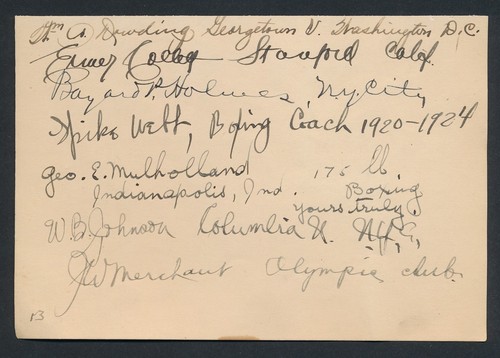 Wm A. Dowding Georgetown U. Washington D.C.
Stanford Calif.
Bayard P. Holmes, N.Y. City
Spike Webb, Boxing Coach 1920-1924
Geo. E. Mulholland 175 lb.
Indianapolis, Ind. Boxing
yours truly.
W.B. Johnson Columbia U. N.Y.C.
J W Merchant Olympic club.
13